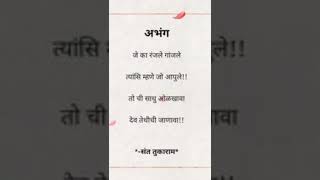 अभंग
जे का रंजले गांजले
त्यांसि म्हणे जो आपुले!!
तो ची साधु ओळखावा
देव तेथीची जाणावा!!
*-संत तुकाराम*